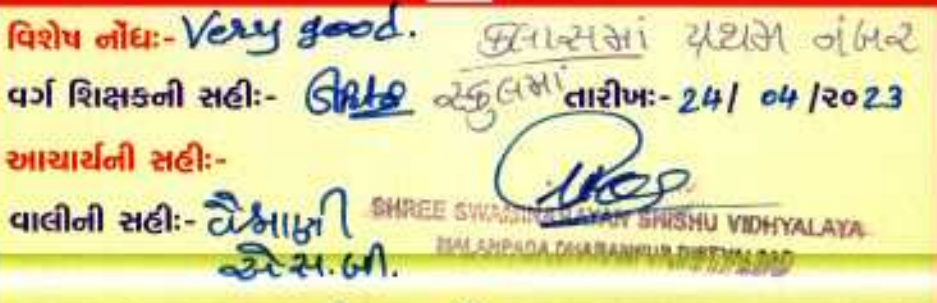 વિશેષ નોંધઃ- Very good. ક્લાસમાં પ્રથમ નંબર
વર્ગ શિક્ષકની સહીઃ- સ્કુલમાં તારીખઃ- 24/ 04 /૨૦23
આચાર્યની સહીઃ-
વાલીની સહીઃ-
SHREE SWAMINARAYAN SHISHU VIDHYALAYA
એસ.બી.